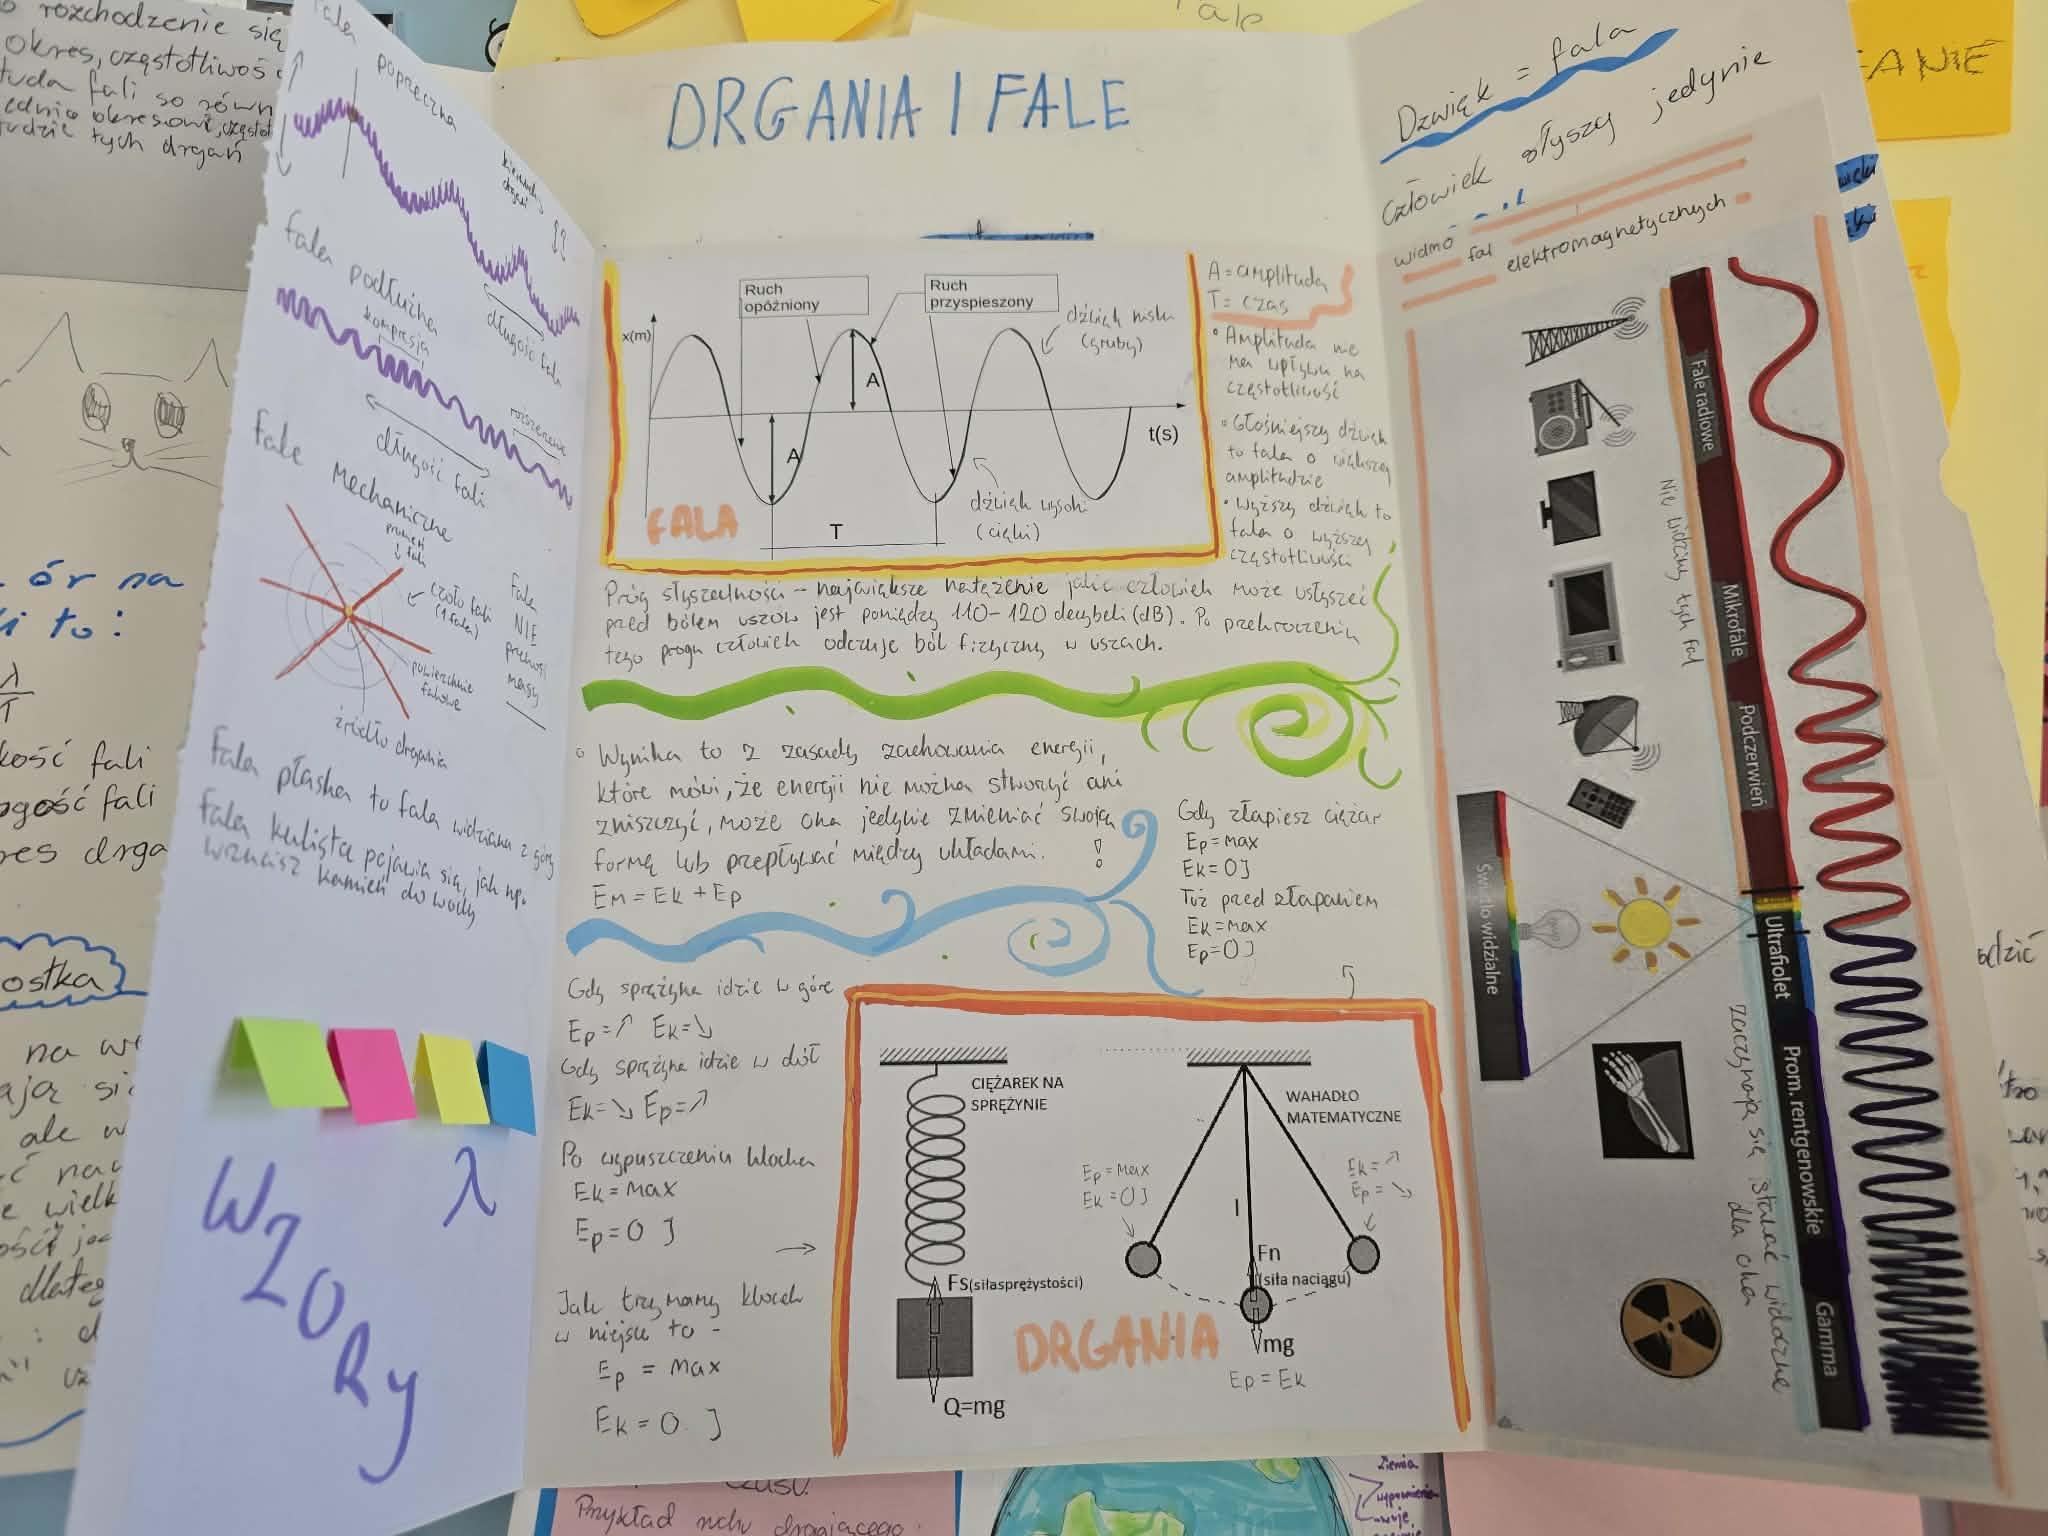 rozchodzenie się
okres, częstotliwoś
tuda fali so równ
tych drgań
Fala poprzeczna
kierunek drgań
długość fali
Fala podłużna
kompresja
rozszerzenie
długość fali
Fale mechaniczne
promień fali
czoło fali (1 fala)
powierzchnie falowe
źródło drgania
Fala NIE przenosi masy
Fala płaska to fala widziana z góry
Fala kulista pojawia się, jak np.
wrzucasz kamień do wody
WZORy
λ
DRGANIA I FALE
x(m)
Ruch opóźniony
Ruch przyspieszony
dźwięk niski (gruby)
A
A
t(s)
T
dźwięk wysoki (cięki)
FALA
A = amplituda
T = czas
• Amplituda nie
ma wpływu na
częstotliwość
• Głośniejszy dźwięk
to fala o większej
amplitudzie
• Wyższy dźwięk to
fala o wyższej
częstotliwości
Próg słyszalności – największe natężenie jakie człowiek może usłyszeć
przed bólem uszów jest pomiędzy 110-120 decybeli (dB). Po przekroczeniu
tego progu człowiek odczuje ból fizyczny w uszach.
Wynika to z zasady zachowania energii,
które mówi, że energii nie można stworzyć ani
zniszczyć, może ona jedynie zmieniać swoją
formę lub przepływać między układami. !
EM = EK + EP
Gdy złapiesz ciężar
Ep = max
Ek = 0J
Tuż przed złapaniem
Ek = max
Ep = 0J
Gdy sprężyna idzie w górę
Ep = ↗ Ek = ↘
Gdy sprężyna idzie w dół
Ek = ↘ Ep = ↗
Po wypuszczeniu klocka
Ek = max
Ep = 0 J
Jak trzymamy klocek
w miejscu to -
Ep = max
Ek = 0 J
CIĘŻAREK NA
SPRĘŻYNIE
Fs(siłasprężystości)
Q=mg
WAHADŁO
MATEMATYCZNE
Ep = max
Ek = 0J
Ek = ↗
Ep = ↘
l
Fn
(siła naciągu)
mg
Ep = Ek
DRGANIA
Dzwięk = fala
człowiek słyszy jedynie
widmo fal elektromagnetycznych
Fale radiowe
Mikrofale
Podczerwień
Ultrafiolet
Prom. rentgenowskie
Gamma
Światło widzialne
Nie widzimy tych fal
zaczynają się stawać widoczne
dla oka
ANIE
λ
T
ość fali
ostka
Przykład ruchu drgającego:
Ziemia